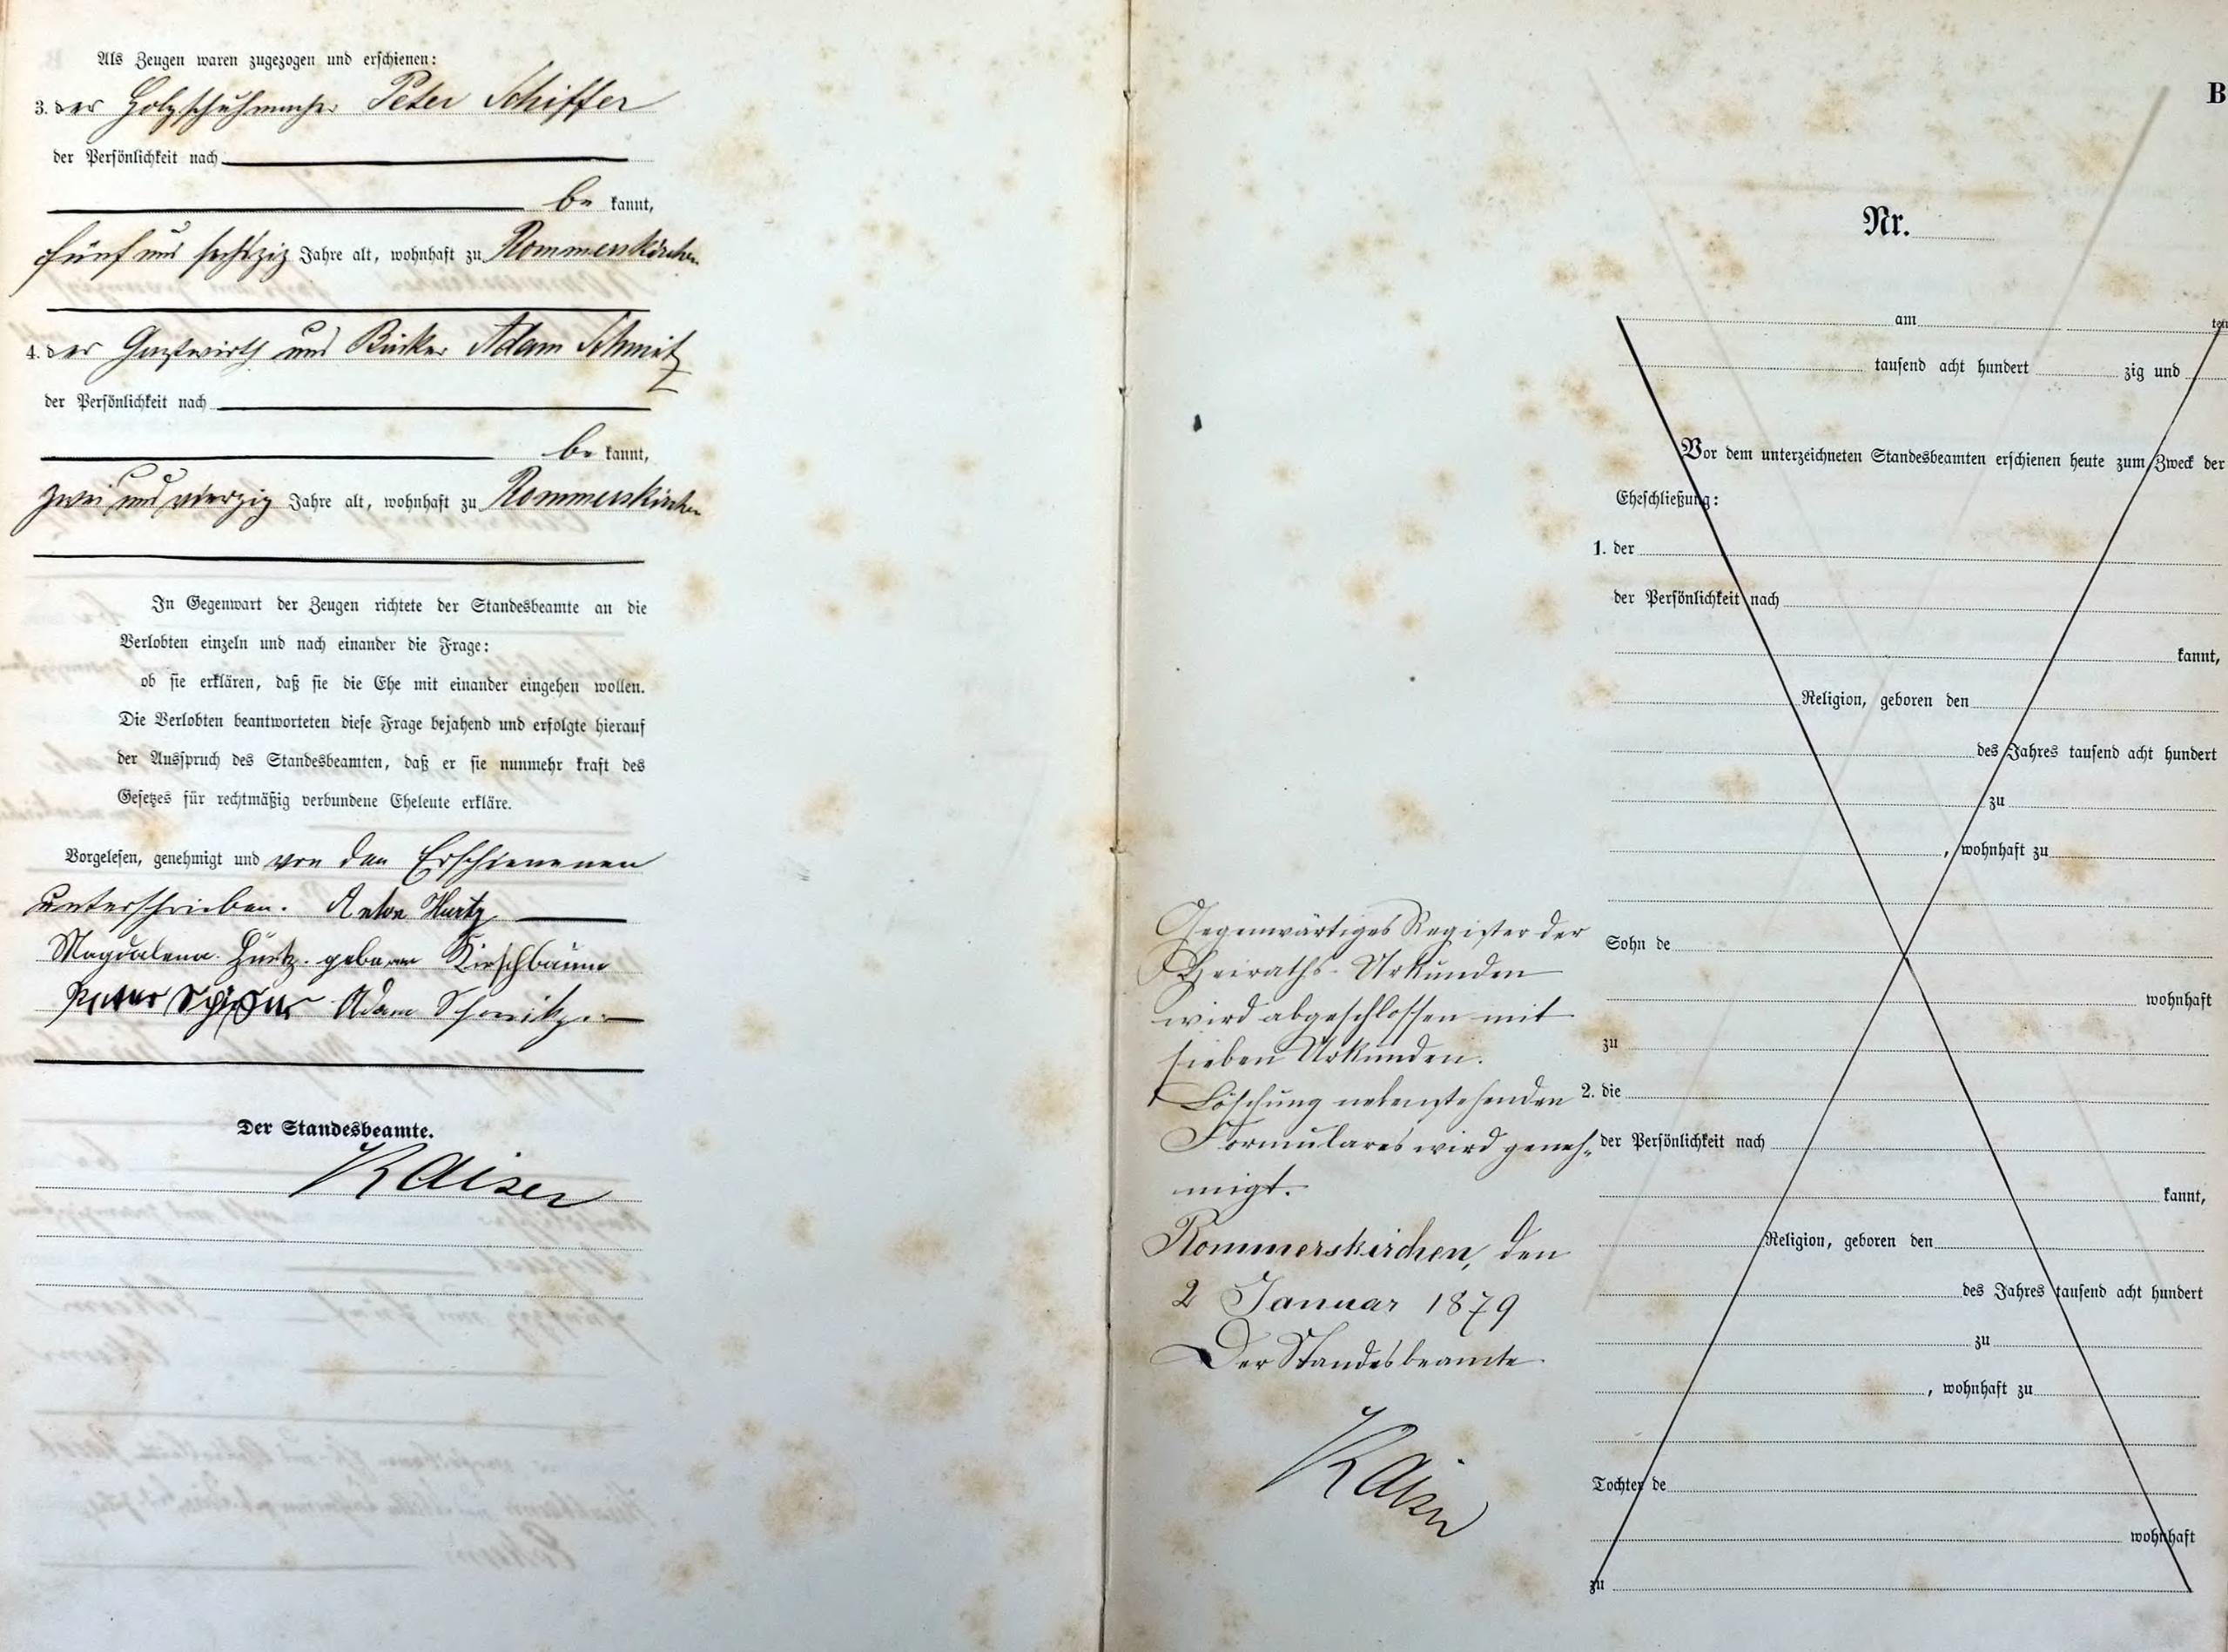 Als Zeugen waren zugezogen und erschienen:
3. der Holzschuhmacher Peter Schiffer
der Persönlichkeit nach
be kannt,
fünf und sechszig Jahre alt, wohnhaft zu Rommerskirchen
4. der Gastwirth und Bäcker Adam Schmitz
der Persönlichkeit nach
be kannt,
zwei und vierzig Jahre alt, wohnhaft zu Rommerskirchen
In Gegenwart der Zeugen richtete der Standesbeamte an die
Verlobten einzeln und nach einander die Frage:
ob sie erklären, daß sie die Ehe mit einander eingehen wollen.
Die Verlobten beantworteten diese Frage bejahend und erfolgte hierauf
der Ausspruch des Standesbeamten, daß er sie nunmehr kraft des
Gesetzes für rechtmäßig verbundene Eheleute erkläre.
Vorgelesen, genehmigt und von den Erschienenen
unterschrieben. Anton Hürtz
Magdalena Hürtz geboren Kirschbaum
Peter Schiffer Adam Schmitz.
Der Standesbeamte.
Kaiser
Gegenwärtiges Register der
Heiraths-Urkunden
wird abgeschlossen mit
sieben Urkunden.
Löschung nebenstehenden
Formulares wird geneh-
migt.
Rommerskirchen, den
2 Januar 1879
Der Standesbeamte.
Kaiser
B
Nr.
am ten
tausend acht hundert zig und
Vor dem unterzeichneten Standesbeamten erschienen heute zum Zweck der
Eheschließung:
1. der
der Persönlichkeit nach
kannt,
Religion, geboren den
des Jahres tausend acht hundert
zu
, wohnhaft zu
Sohn de
wohnhaft
zu
2. die
der Persönlichkeit nach
kannt,
Religion, geboren den
des Jahres tausend acht hundert
zu
, wohnhaft zu
Tochter de
wohnhaft
zu